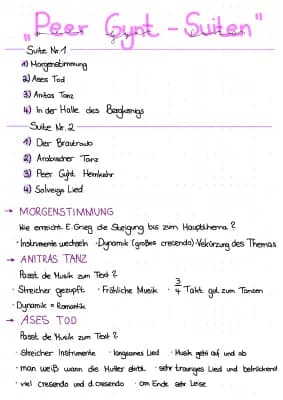 "Peer Gynt - Suiten"
Suite Nr. 1
1) Morgenstimmung
2) Ases Tod
3) Anitas Tanz
4) In der Halle des Bergkönigs
Suite Nr. 2
1) Der Brautraub
2) Arabischer Tanz
3) Peer Gynt Heimkehr
4) Solveigs Lied
→ MORGENSTIMMUNG
Wie erreicht E. Grieg die Steigung bis zum Hauptthema?
· Instrumente wechseln · Dynamik (großes crescendo) · Verkürzung des Themas
→ ANITRAS TANZ
Passt die Musik zum Text?
· Streicher gezupft · Fröhliche Musik · 3/4 Takt gut zum Tanzen
· Dynamik = Romantik
→ ASES TOD
Passt die Musik zum Text?
· Streicher Instrumente · langsames Lied · Musik geht auf und ab
· man weiß wann die Mutter stirbt · sehr trauriges Lied und betrückend
· viel crescendo und d.crescendo · am Ende sehr leise